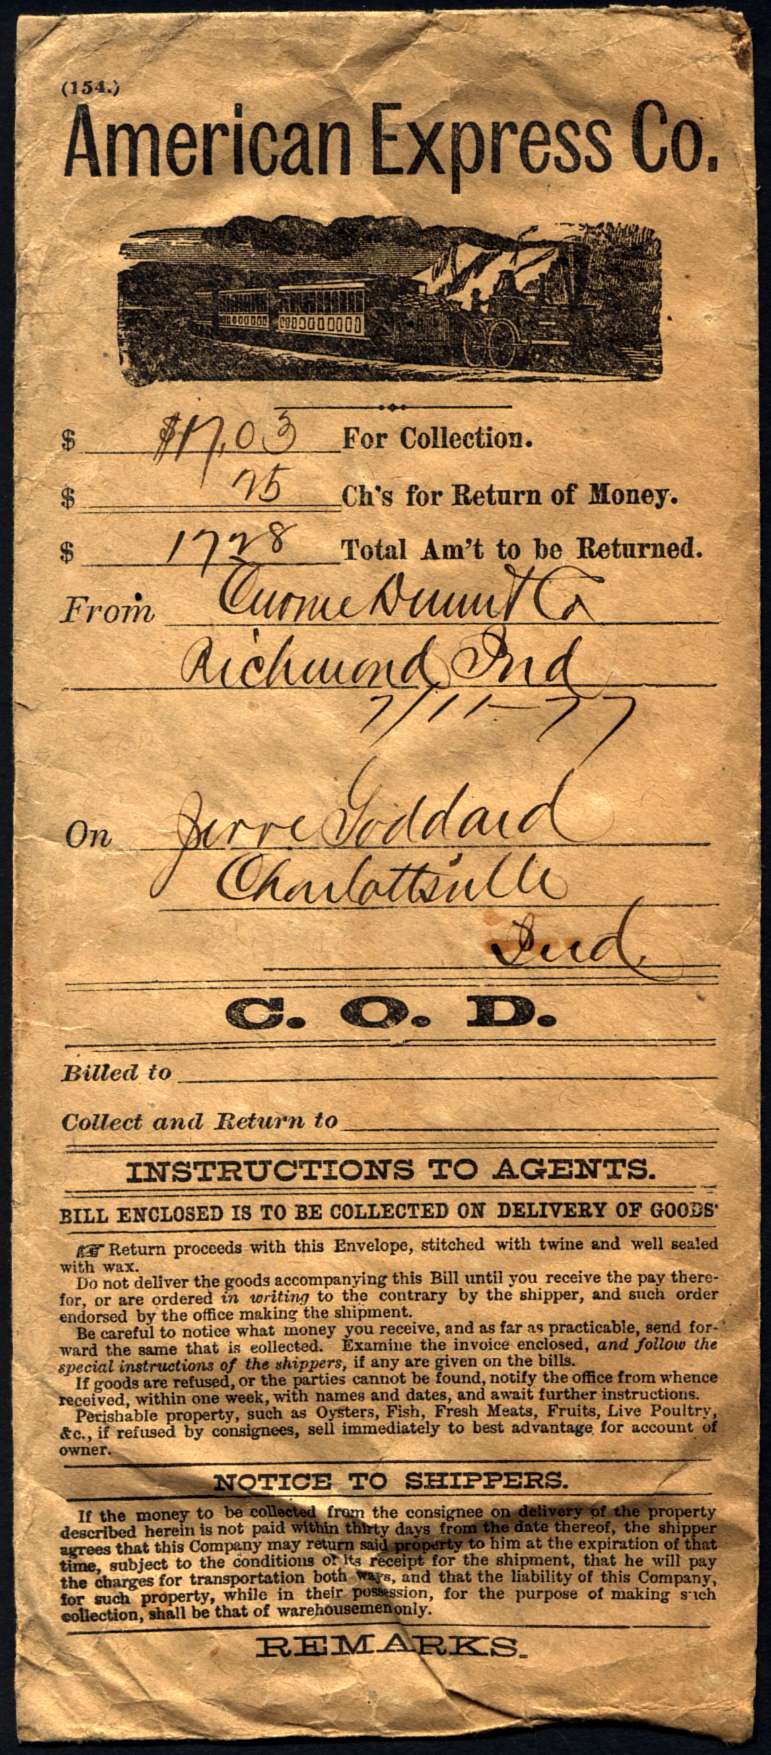 (154.)
American Express Co.
$ $17,03 For Collection.
$ 25 Ch's for Return of Money.
$ 1728 Total Am't to be Returned.
From Co
Richmond Ind
7/11-77
On Jerre Goddard
Charlottsville
Ind.
C. O. D.
Billed to
Collect and Return to
INSTRUCTIONS TO AGENTS.
BILL ENCLOSED IS TO BE COLLECTED ON DELIVERY OF GOODS'
☞ Return proceeds with this Envelope, stitched with twine and well sealed
with wax.
Do not deliver the goods accompanying this Bill until you receive the pay there-
for, or are ordered in writing to the contrary by the shipper, and such order
endorsed by the office making the shipment.
Be careful to notice what money you receive, and as far as practicable, send for-
ward the same that is collected. Examine the invoice enclosed, and follow the
special instructions of the shippers, if any are given on the bills.
If goods are refused, or the parties cannot be found, notify the office from whence
received, within one week, with names and dates, and await further instructions.
Perishable property, such as Oysters, Fish, Fresh Meats, Fruits, Live Poultry,
&c., if refused by consignees, sell immediately to best advantage for account of
owner.
NOTICE TO SHIPPERS.
If the money to be collected from the consignee on delivery of the property
described herein is not paid within thirty days from the date thereof, the shipper
agrees that this Company may return said property to him at the expiration of that
time, subject to the conditions of its receipt for the shipment, that he will pay
the charges for transportation both ways, and that the liability of this Company,
for such property, while in their possession, for the purpose of making such
collection, shall be that of warehousemen only.
REMARKS.